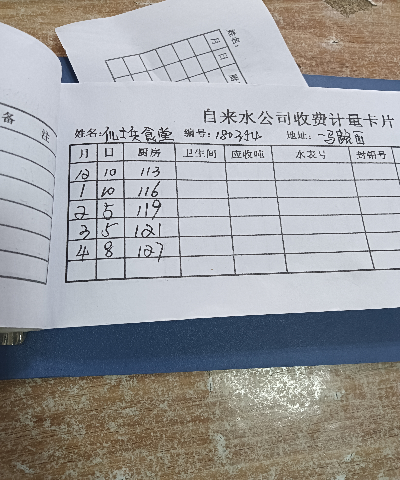 姓名:
月 日
备 注
自来水公司收费计量卡片
姓名: 编号: 地址:
月 日 厨房 卫生间 应收吨 水表号 封铅号
12 10 113
1 10 116
2 5 119
3 5 121
4 8 127